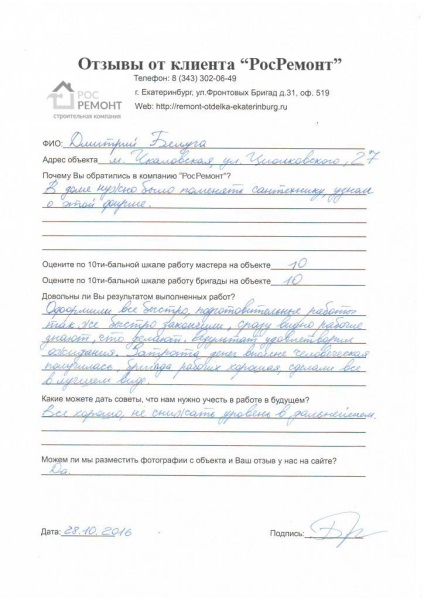 Отзывы от клиента “РосРемонт”
Телефон: 8 (343) 302-06-49
г. Екатеринбург, ул.Фронтовых Бригад д.31, оф. 519
Web: http://remont-otdelka-ekaterinburg.ru
РОС
РЕМОНТ
строительная компания
ФИО: Дмитрий Белуга
Адрес объекта м. Чкаловская, ул. Циолковского, 27
Почему Вы обратились в компанию "РосРемонт"?
В доме нужно было поменять сантехнику, узнал
о этой фирме.
Оцените по 10ти-бальной шкале работу мастера на объекте 10
Оцените по 10ти-бальной шкале работу бригады на объекте 10
Довольны ли Вы результатом выполненных работ?
Оформили все быстро, подготовительные работы
так же быстро закончили, сразу видно рабочие
знают, что делают. Результат удовлетворил
ожидания. Затрата денег вполне человеческая
получилась, бригада рабочих хорошая, сделали все
в лучшем виде.
Какие можете дать советы, что нам нужно учесть в работе в будущем?
Все хорошо, не снижать уровень в дальнейшем.
Можем ли мы разместить фотографии с объекта и Ваш отзыв у нас на сайте?
Да.
Дата: 28.10.2016
Подпись: